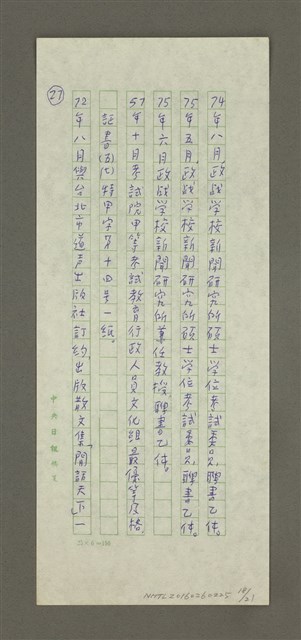 27
74年八月政战学校新聞研究所碩士学位考試委員聘書乙件。
75年五月政战学校新聞研究所碩士学位考試委員聘書乙件。
75年六月政战学校新聞研究所兼任教授聘書乙件。
57年十月考試院甲等考試教育行政人員文化組最優等及格。
証書(五七)特甲字第十四号一紙。
72年八月與台北市道声出版社訂約,出版散文集「閒話天下」一
中央日報稿頁
NMTL20160260225
18/21